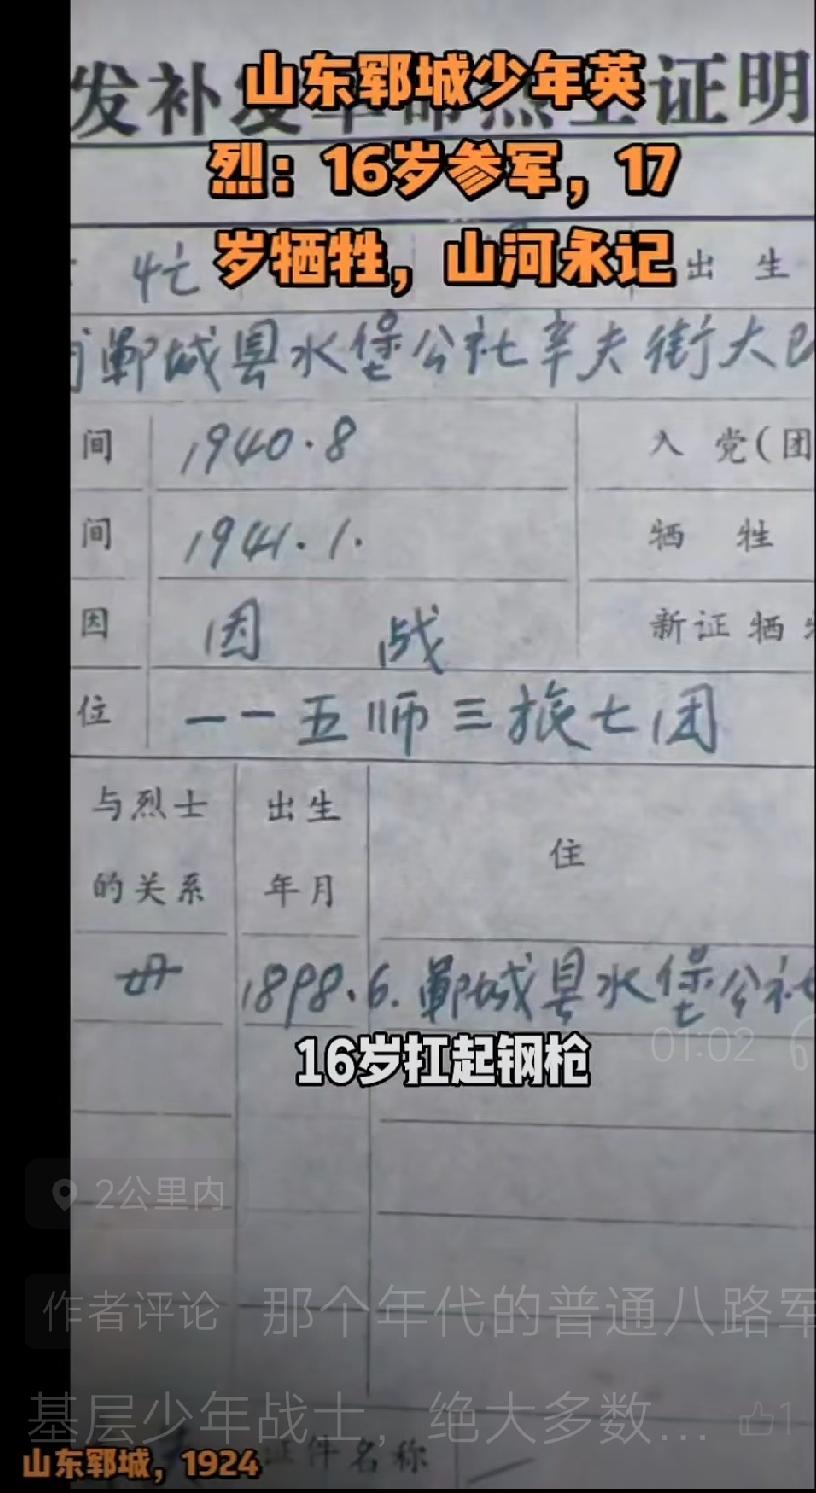 发补发革命烈士证明
山东郓城少年英
烈：16岁参军，17
岁牺牲，山河永记
忙
出 生
郓城县水堡公社辛夫街大
间 1940.8 入 党(团
间 1941.1. 牺 牲
因 因 战 新证牺
位 一一五师三旅七团
与烈士
的关系
出生
年月
住
母 1898.6. 郓城县水堡公社
16岁扛起钢枪
01:02
2公里内
作者评论 那个年代的普通八路军
基层少年战士，绝大多数... 1
山东郓城，1924
证件名称